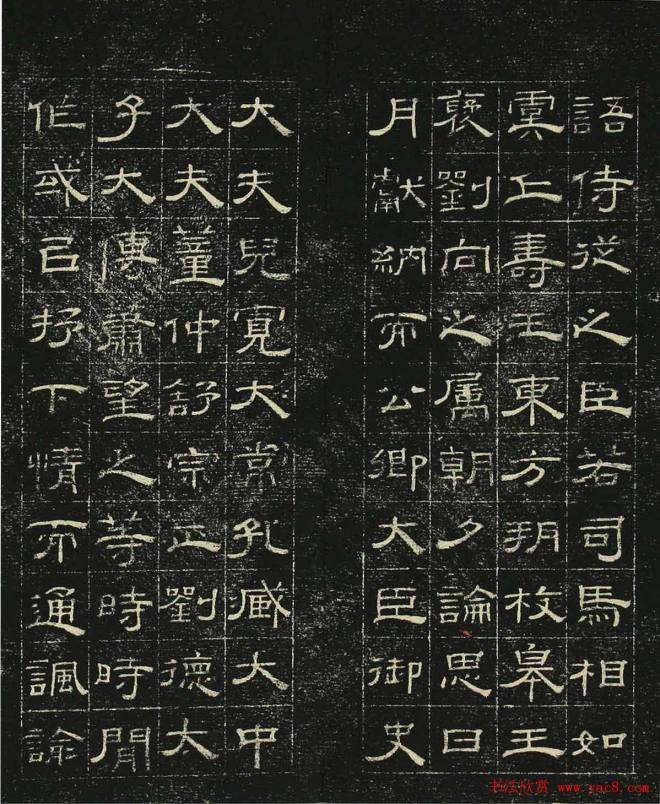 語侍從之臣若司馬相如
虞丘壽王東方朔枚皋王
褒劉向之属朝夕論思日
月獻納而公卿大臣御史
大夫兒寬大常孔臧大中
大夫董仲舒宗正劉德大
子大傅蕭望之等時時閒
作或㠯抒下情而通諷諭
书法欣赏 www.yac8.com